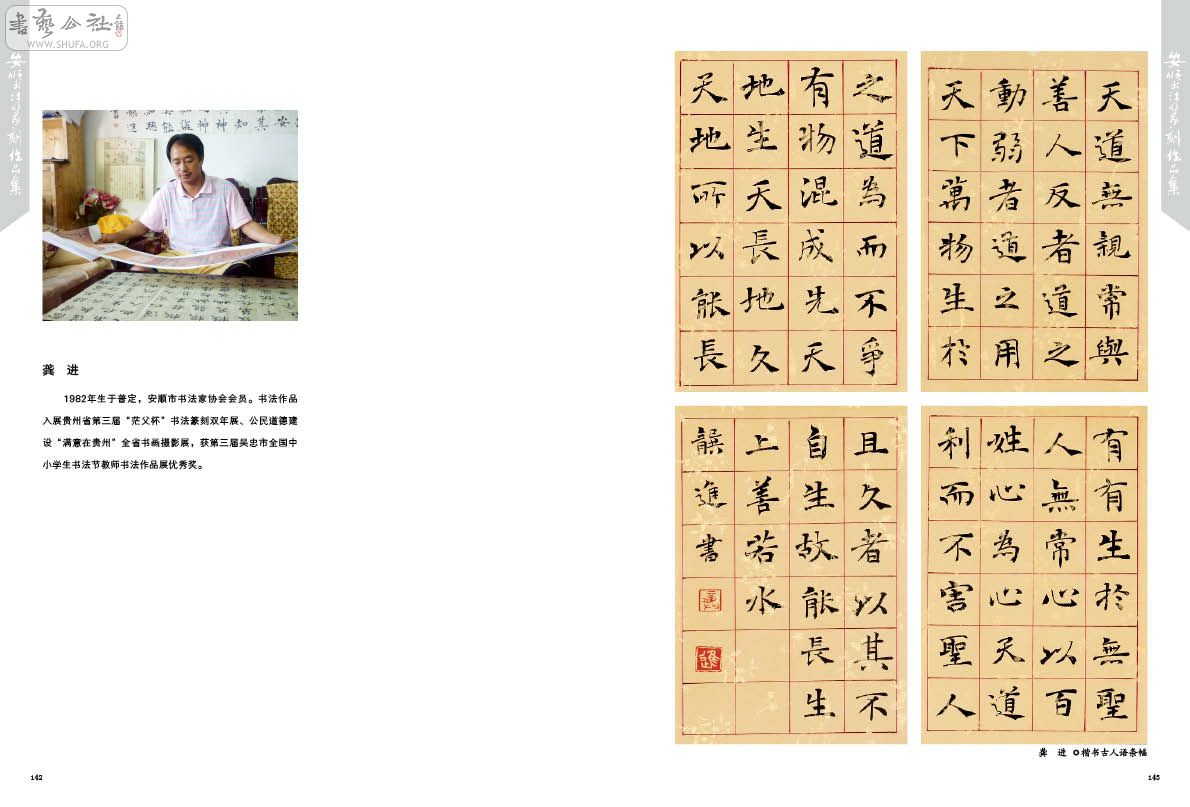 書藝公社
WWW.SHUFA.ORG
安顺书法篆刻作品集
龚 进
1982年生于普定，安顺市书法家协会会员。书法作品
入展贵州省第三届“茫父杯”书法篆刻双年展、公民道德建
设“满意在贵州”全省书画摄影展，获第三届吴忠市全国中
小学生书法节教师书法作品展优秀奖。
142
安顺书法篆刻作品集
天道無親常與
善人反者道之
動弱者道之用
天下萬物生於
有有生於無聖
人無常心以百
姓心為心天道
利而不害聖人
之道為而不爭
有物混成先天
地生天長地久
天地所以能長
且久者以其不
自生故能長生
上善若水
龔進書
進
龚 进 楷书古人语条幅
143